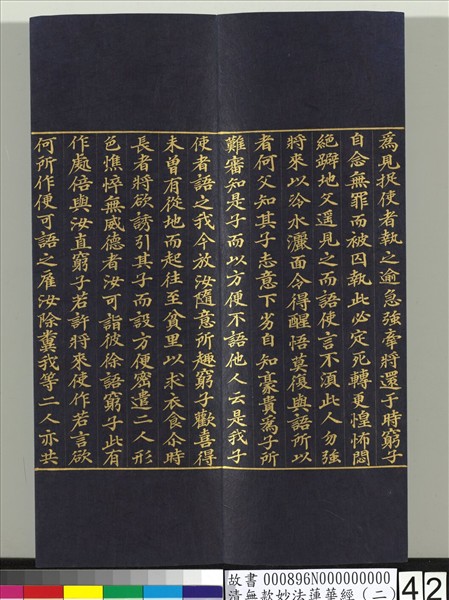 為見捉使者執之逾急強牽將還于時窮子
自念無罪而被囚執此必定死轉更惶怖悶
絕躃地父遙見之而語使言不湏此人勿強
將來以冷水灑面令得醒悟莫復與語所以
者何父知其子志意下劣自知豪貴為子所
難審知是子而以方便不語他人云是我子
使者語之我今放汝隨意所趣窮子歡喜得
未曾有從地而起往至貧里以求衣食尒時
長者將欲誘引其子而設方便密遣二人形
色憔悴無威德者汝可詣彼徐語窮子此有
作處倍與汝直窮子若許將來使作若言欲
何所作便可語之雇汝除糞我等二人亦共
故書 000896N000000000
清無款妙法蓮華經（二）
42